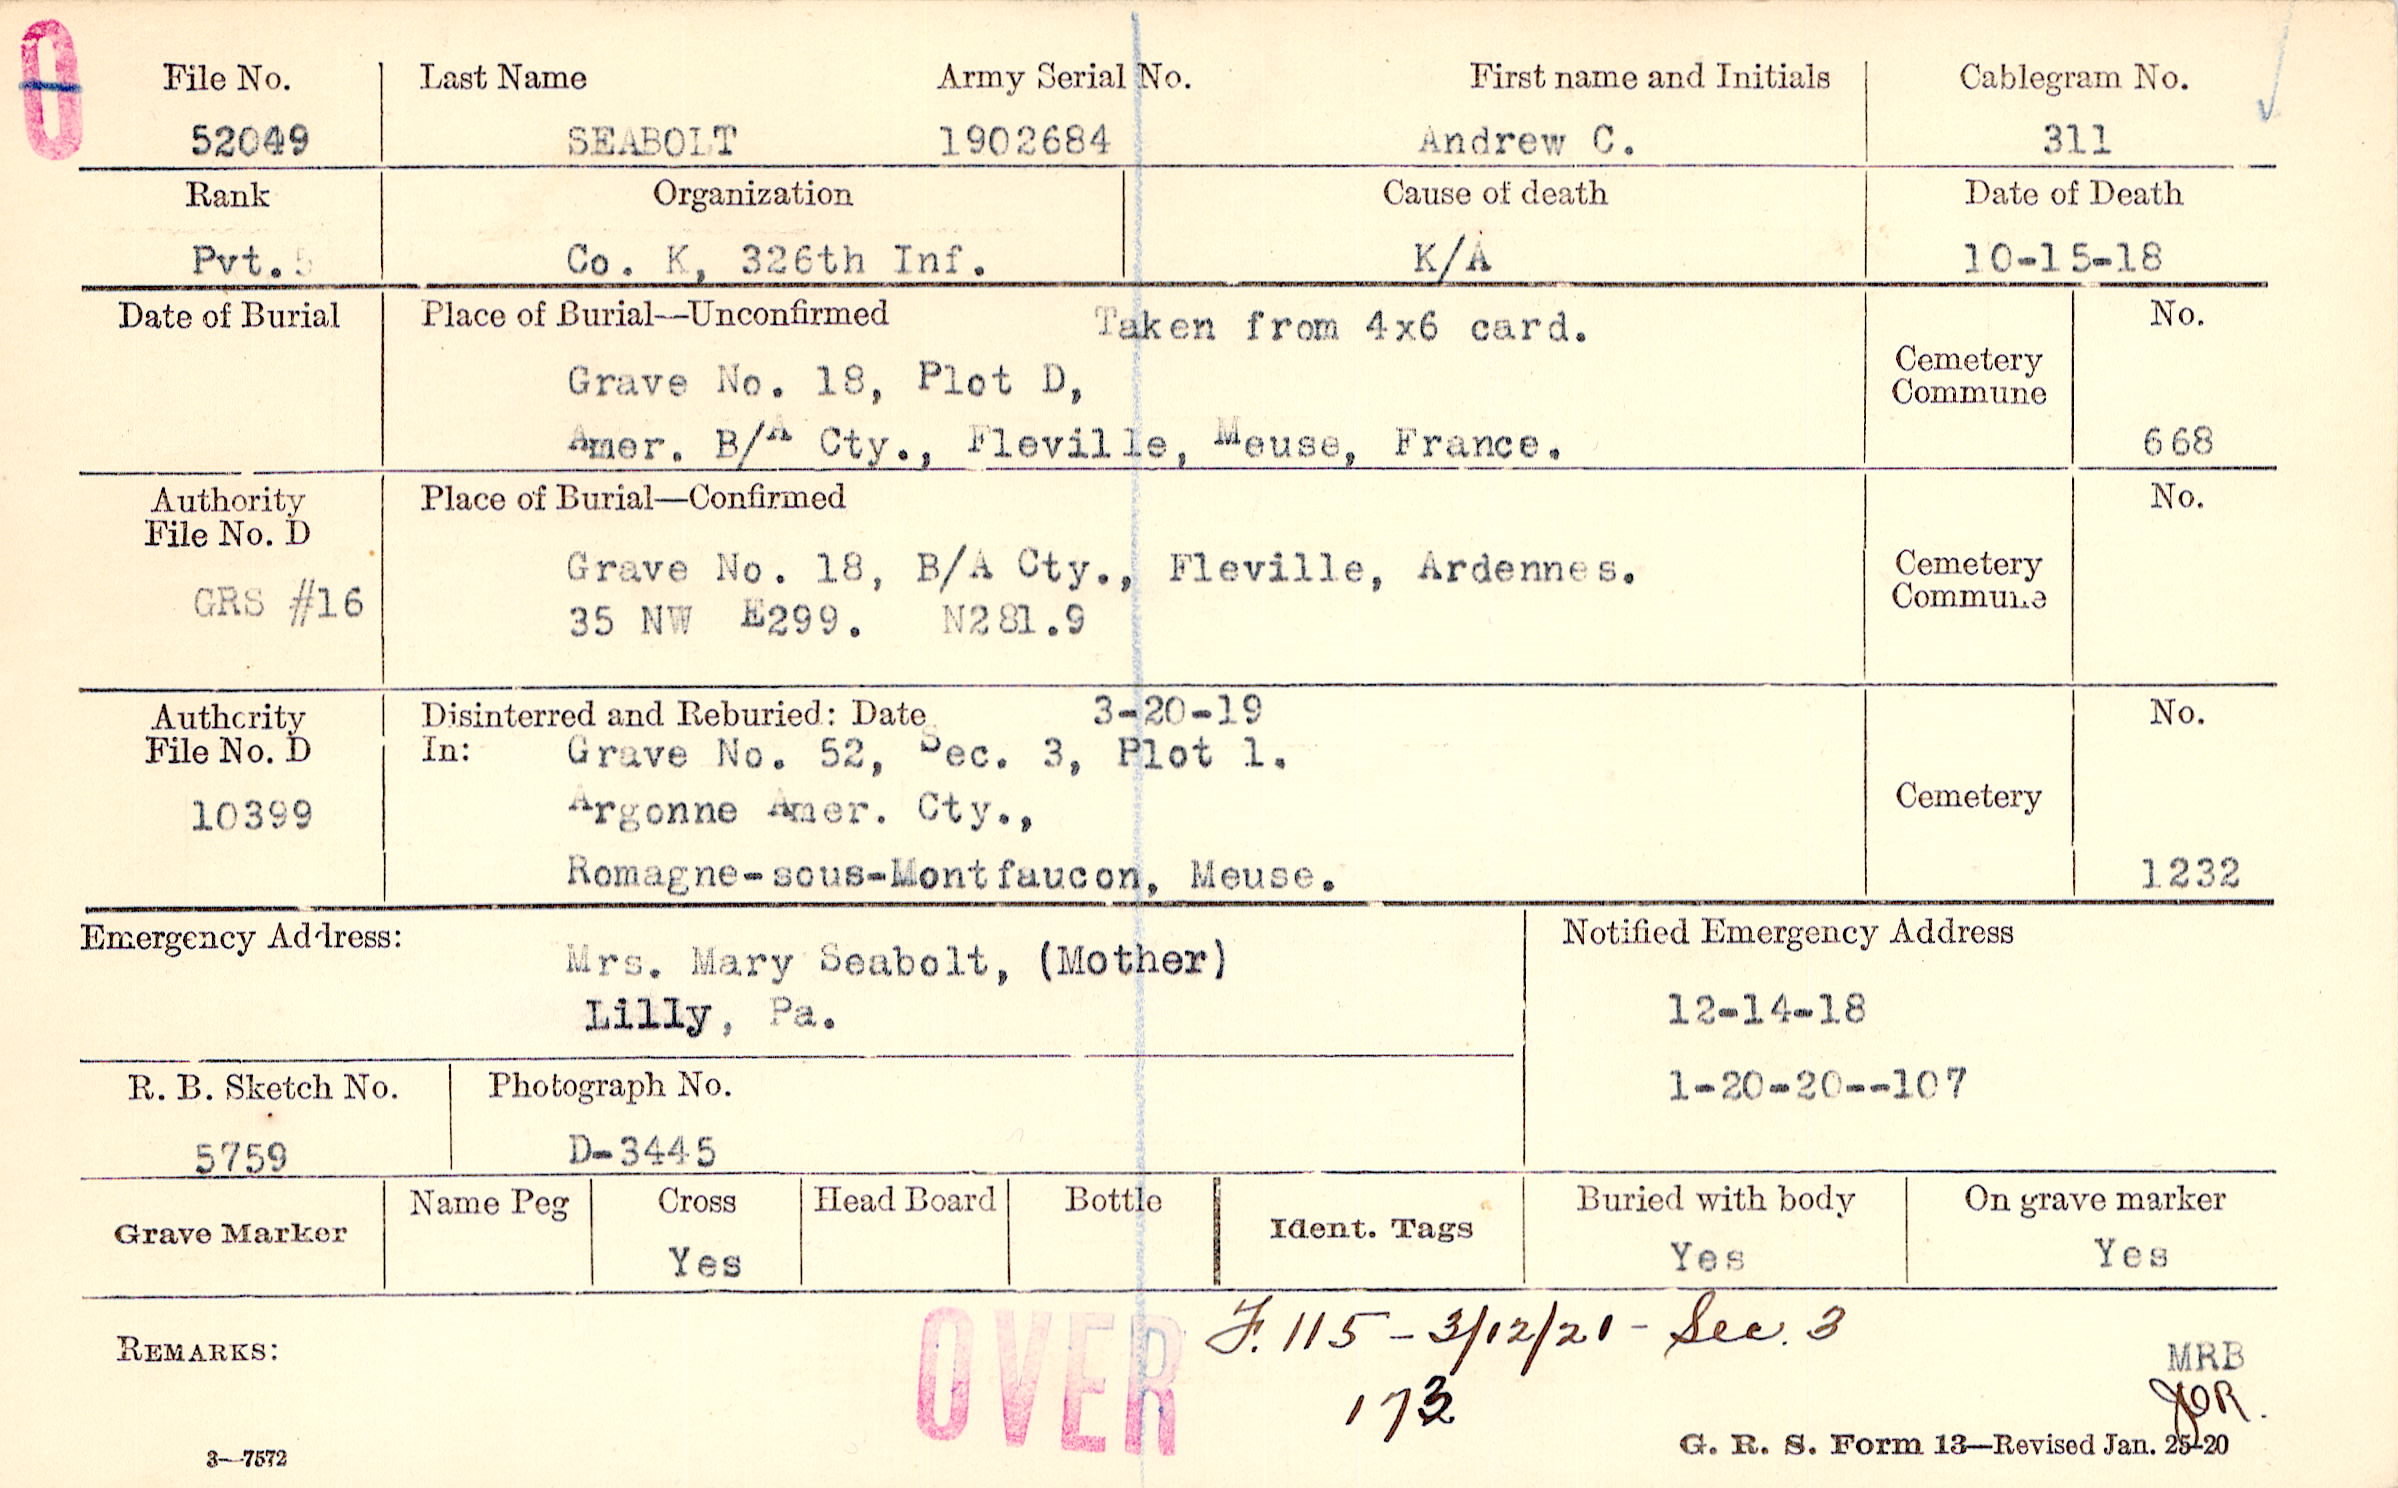 0
File No. Last Name Army Serial No. First name and Initials Cablegram No.
52049 SEABOLT 1902684 Andrew C. 311
Rank Organization Cause of death Date of Death
Pvt. Co. K, 326th Inf. K/A 10-15-18
Date of Burial Place of Burial—Unconfirmed Taken from 4x6 card. No.
Cemetery
Commune
Grave No. 18, Plot D,
Amer. B/A Cty., Fleville, Meuse, France. 668
Authority Place of Burial—Confirmed No.
File No. D
Cemetery
Commune
Grave No. 18, B/A Cty., Fleville, Ardennes.
GRS #16 35 NW E299. N281.9
Authority Disinterred and Reburied: Date 3-20-19 No.
File No. D In: Grave No. 52, Sec. 3, Plot 1.
Cemetery
10399 Argonne Amer. Cty.,
Romagne-sous-Montfaucon, Meuse. 1232
Emergency Address: Notified Emergency Address
Mrs. Mary Seabolt, (Mother)
Lilly, Pa. 12-14-18
1-20-20--107
R. B. Sketch No. Photograph No.
5759 D-3445
Grave Marker Name Peg Cross Head Board Bottle Ident. Tags Buried with body On grave marker
Yes Yes Yes
OVER F. 115 - 3/12/21 - Sec. 3
REMARKS: MRB
173 JOR.
3—7572 G. R. S. Form 13—Revised Jan. 25-20